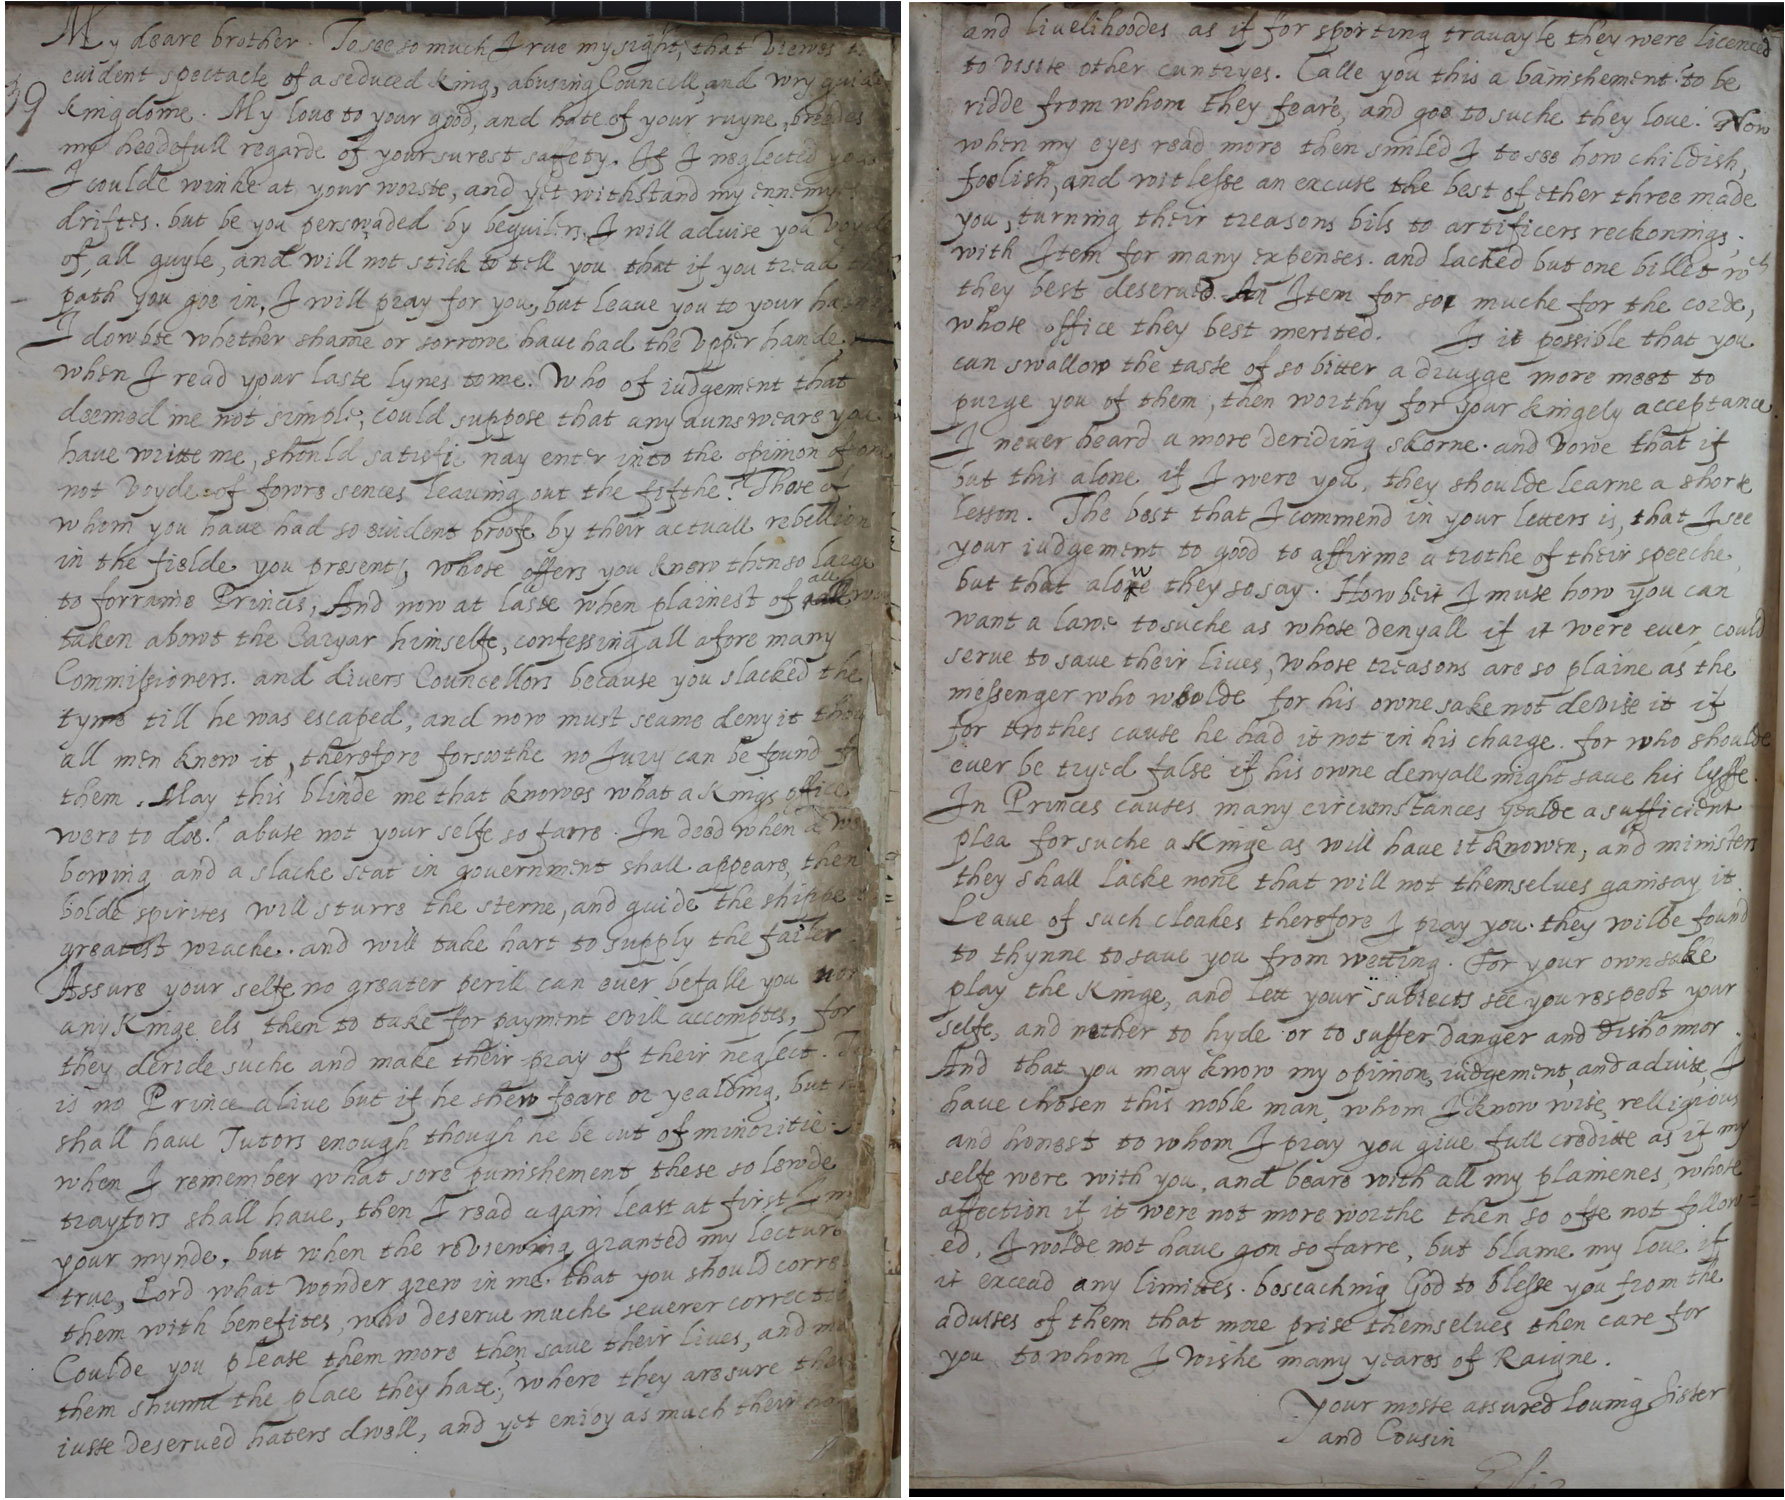 My deare brother. To see so much I rue my sight, that viewes
evident spectacle of a seduced King, abusing Councell, and wry
39
kingdome. My love to your good, and hate of your ruyne, breedes
my heedefull regarde of your surest saffety. If I neglected you
I coulde winke at your worste, and yet withstand my ennemyes
driftes. but be you perswaded by beguilers, I will advise you voyde
of all guyle, and will not stick to tell you that if you tread the
path you goe in, I will pray for you, but leave you to your
I dowbte whether shame or sorrowe have had the upper hande
when I read your laste lynes to me. Who of iudgement that
deemed me not simple, could suppose that any aunsweare you
have writte me, should satisfie nay enter into the opinion of
not voyde of fowre sences leaving out the fifthe? Those of
whom you have had so evident proofe by their actuall rebellion
in the fielde you present, whose offers you knew then so large
to forraine Princes, And now at laste when plainest of all was
taken abowt the Caryar himselfe, confessing all afore many
Commissioners. and divers Councellors because you slacked the
tyme till he was escaped, and now must seame deny it though
all men knew it, therefore forsoothe no Jury can be found for
them. May this blinde me that knowes what a Kings office
were to doe? abuse not your selfe so farre. In deed when a
bowing and a slacke seat in government shall appeare, then
bolde spirites will sturre the sterne, and guide the shippe to
greatest wracke. and will take hart to supply the failer
Assure your selfe no greater perill can ever befalle you nor
any Kinge els, then to take for payment evill accomptes, for
they deride suche and make their pray of their neglect. There
is no Prince alive but if he shew feare or yealding, but he
shall have Tutors enough though he be out of minoritie.
when I remember what sore punishement these so lewde
traytors shall have, then I read again least at first I
your mynde, but when the reviewing granted my lecture
true, Lord what wonder grew in me that you should correct
them with benefites, who deserve muche severer correction
Coulde you please them more then save their lives, and make
them shunne the place they hate, where they are sure their
iuste deserved haters dwell, and yet enioy as much their
and livelihoodes as if for sporting travayle they were licenced
to visite other cuntryes. Calle you this a banishement to be
ridde from whom they feare, and goe to suche they love. Now
when my eyes read more then smiled I to see how childish,
foolish, and witlesse an excuse the best of ether three made
you, turning their treasons bils to artificers reckonings,
with Item for many expenses. and lacked but one billet wch
they best deserved An Item for so muche for the corde,
whose office they best merited. Is it possible that you
can swallow the taste of so bitter a drugge more meet to
purge you of them, then worthy for your kingely acceptance.
I never heard a more deriding skorne. and vowe that if
but this alone if I were you, they shoulde learne a shorte
lesson. The best that I commend in your letters is, that I see
your iudgement to good to affirme a trothe of their speeche,
but that alone they so say. Howbeit I muse how you can
want a lawe to suche as whose denyall if it were ever could
serve to save their lives, whose treasons are so plaine as the
messenger who woulde for his owne sake not devise it if
for trothes cause he had it not in his charge. for who shoulde
ever be tryed false if his owne denyall might save his lyffe.
In Princes causes many circumstances yealde a sufficient
plea for suche a Kinge as will have it knowen, and ministers
they shall lacke none that will not themselves gainsay it
Leave of such cloakes therefore I pray you. they wilbe found
to thynne to save you from wetting. For your own sake
play the Kinge, and lett your subiects see you respect your
selfe, and nether to hyde or to suffer danger and dishonnor.
And that you may know my opinion, iudgement, and advise, I
have chosen this noble man, whom I know wise, relligious
and honest to whom I pray you give full creditte as if my
selfe were with you, and beare with all my plainenes, whose
affection if it were not more worthe then so ofte not follow-
ed, I wolde not have gon so farre, but blame my love if
it excead any limittes. beseaching God to blesse you from the
advises of them that more prise themselves then care for
you to whom I wishe many yeares of Raigne.
Your moste assured loving Sister
and Cousin